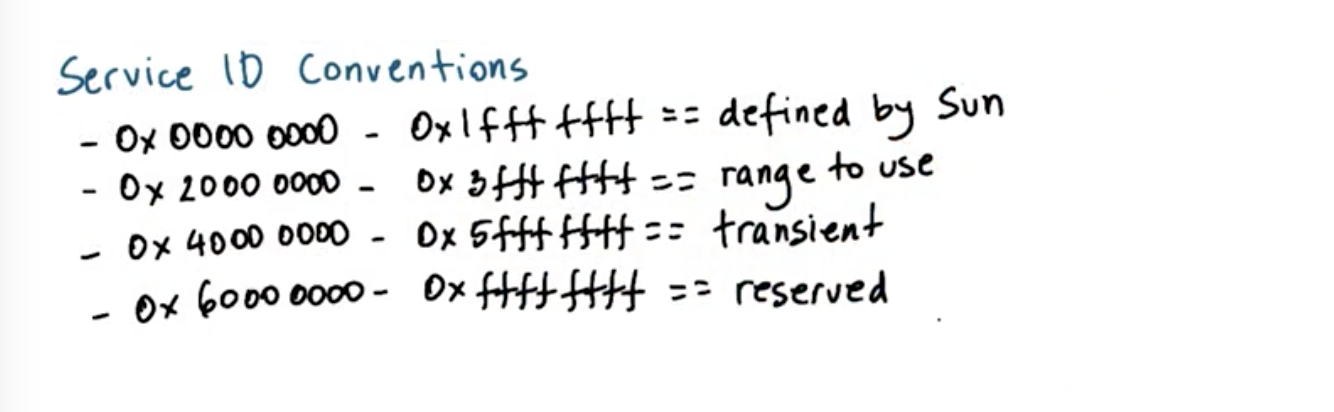 Service ID Conventions
- 0x 0000 0000 - 0x1fff ffff == defined by Sun
- 0x 2000 0000 - 0x 3fff ffff == range to use
- 0x 4000 0000 - 0x 5fff ffff == transient
- 0x 6000 0000 - 0x ffff ffff == reserved